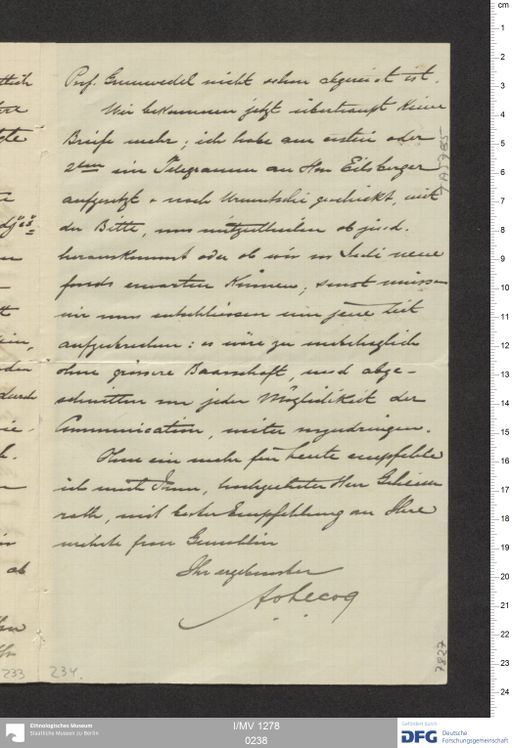 Prof. Grunwedel nicht schon abgereist ist.
Wir bekommen jetzt überhaupt keine
Briefe mehr; ich habe am ersten oder
2ten ein Telegramm an Herr Eilsberger
aufgesetzt + nach Urumtschi geschickt, mit
der Bitte, uns mitzutheilen ob jesd.
herauskommt oder ob wir im Juli neue
fonds erwarten können; sonst müssen
wir uns entschliessen um jene Zeit
aufzubrechen: es wäre zu unbehaglich
ohne grössere Baarschaft, und abge-
schnitten von jeder Möglichkeit der
Communication, weiter vorzudringen.
Ohne ein mehr für heute empfehle
ich mich Ihnen, hochgeehrter Herr Geheim
rath, mit bester Empfehlung an Ihre
verehrte Frau Gemahlin
Ihr ergebenster
A v LeCoq
233
234.
7827
Ethnologisches Museum
Staatliche Museen zu Berlin
I/MV 1278
0238
Gefördert durch
DFG Deutsche
Forschungsgemeinschaft
cm
1
2
3
4
5
6
7
8
9
10
11
12
13
14
15
16
17
18
19
20
21
22
23
24